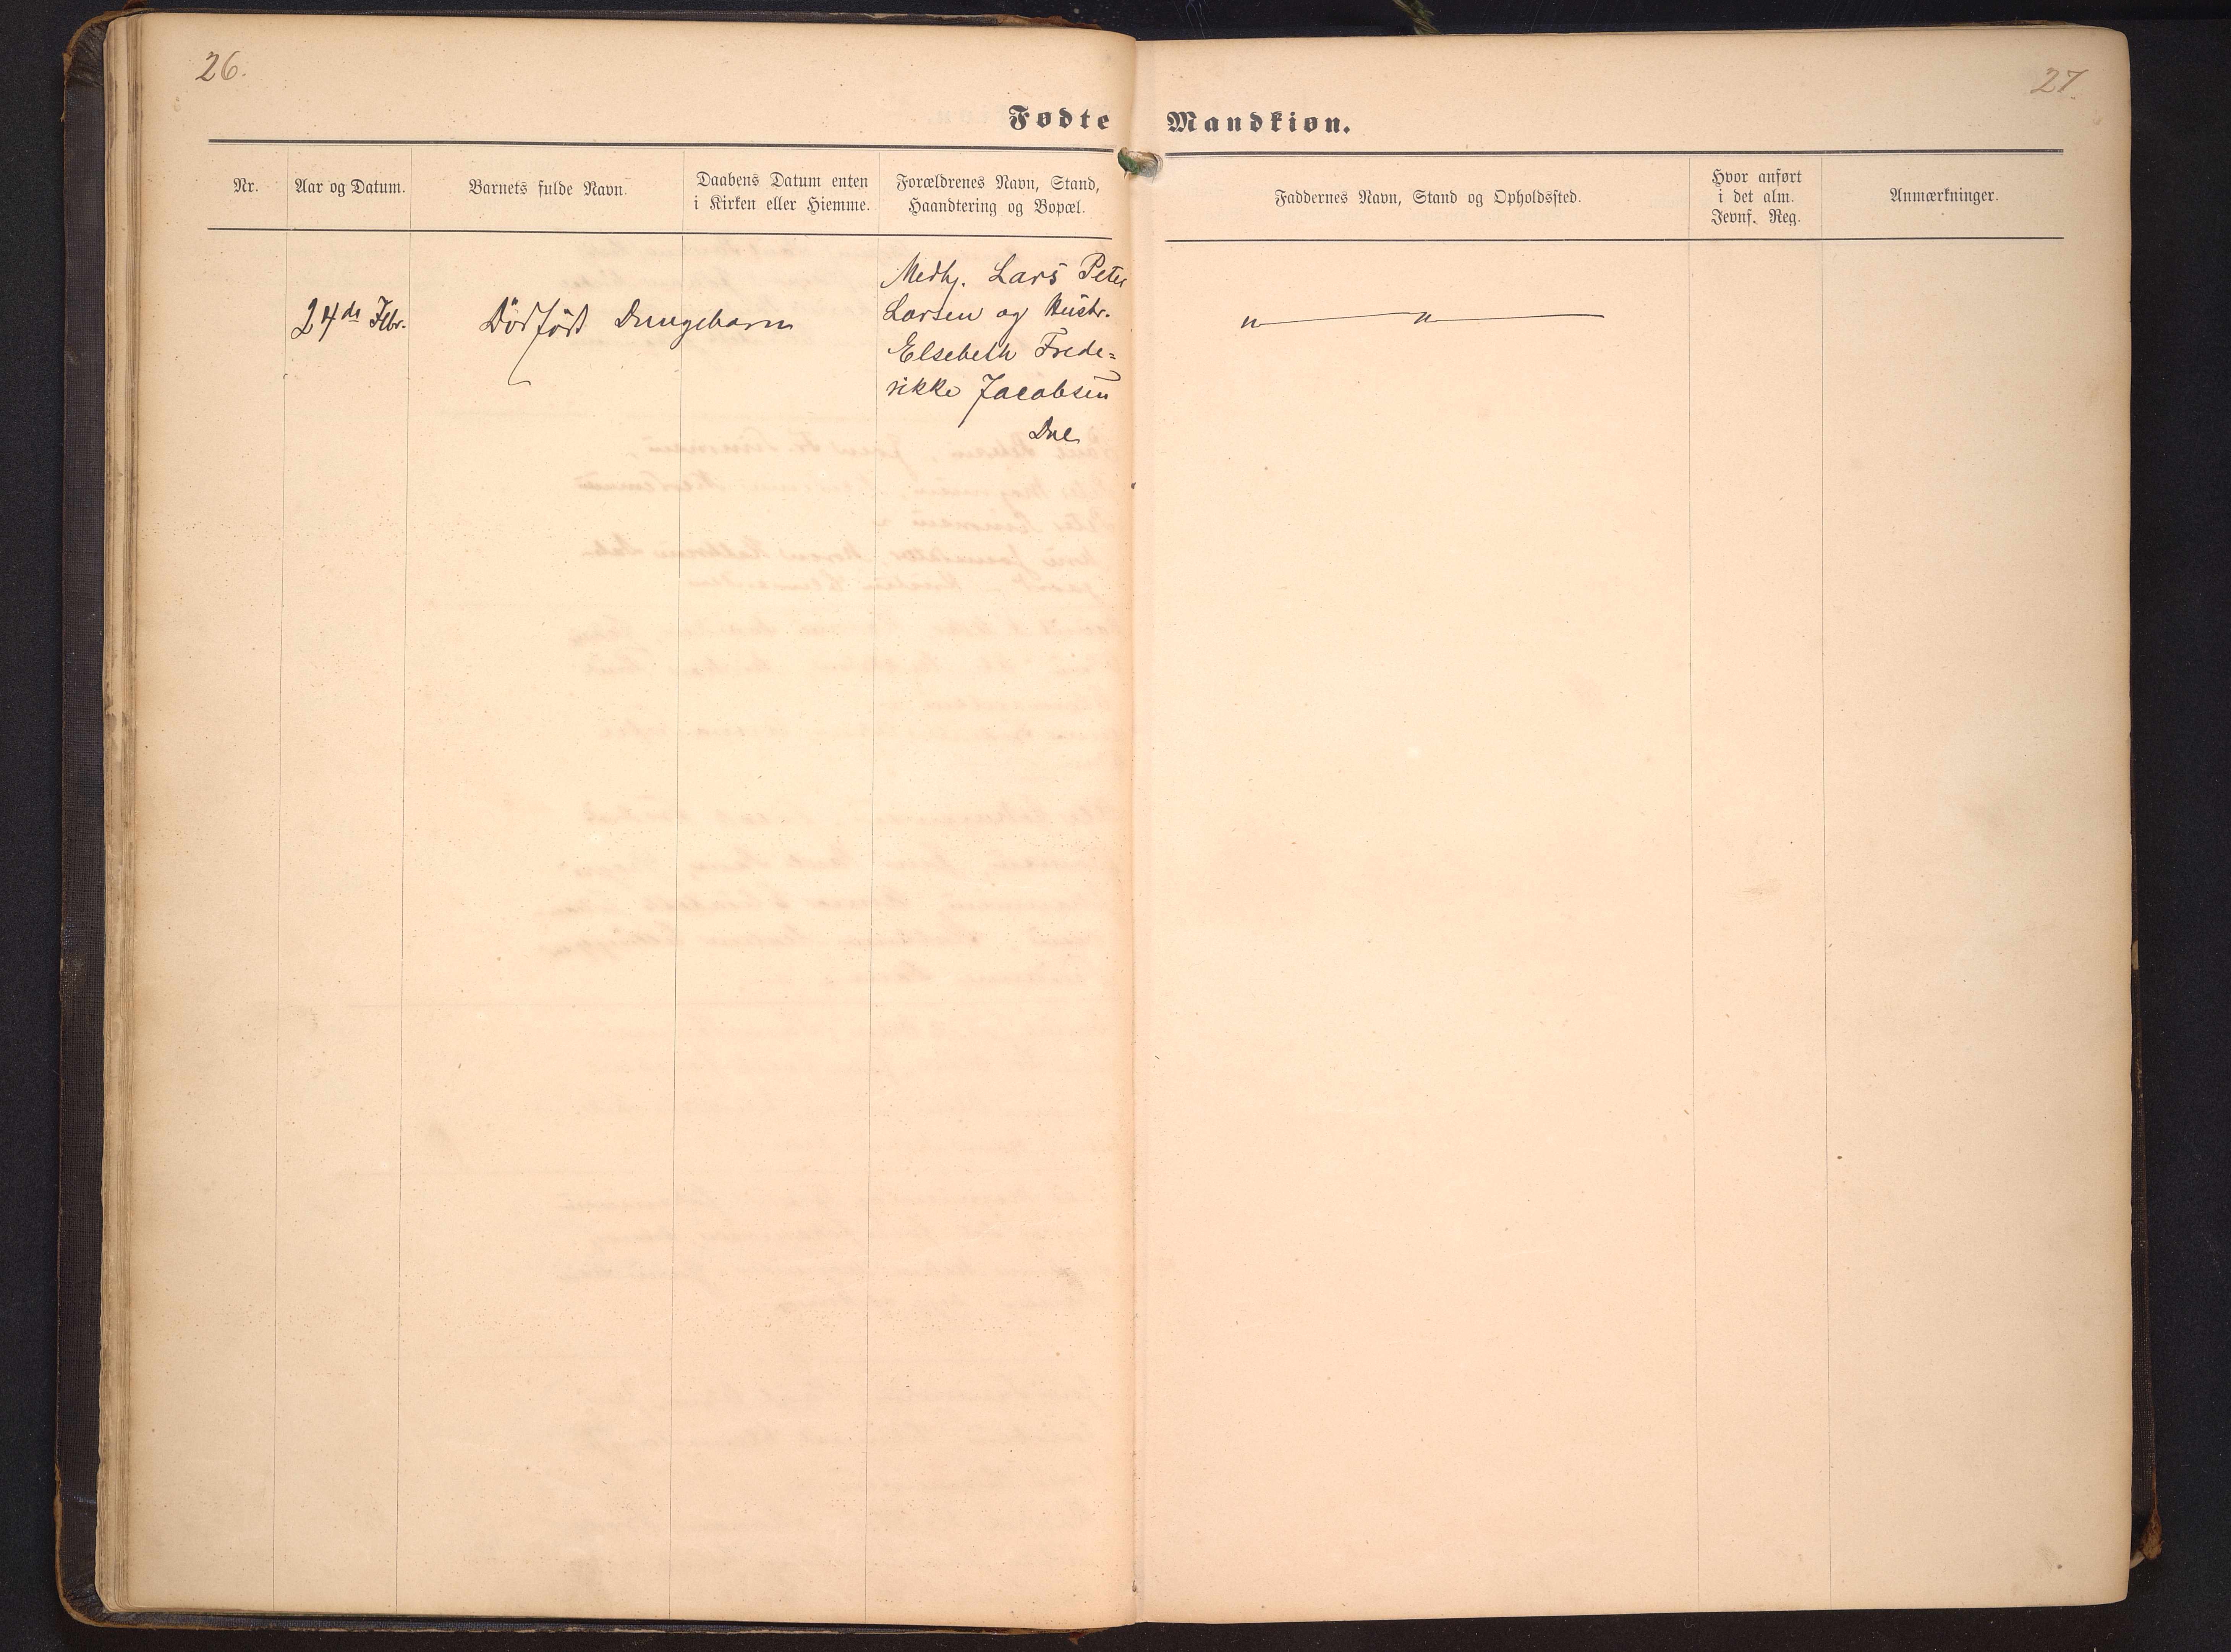 26.
27.
Fødte Mandkiøn.
Nr.
Aar og Datum.
Barnets fulde Navn.
Daabens Datum enten
i Kirken eller Hiemme.
Forældrenes Navn, Stand,
Haandtering og Bopæl.
Faddernes Navn, Stand og Opholdssted.
Hvor anført
i det alm.
Jevnf. Reg.
Anmærkninger.
24de Febr.
Dödfödt Drengebarn
Medhj. Lars Peter
Larsen og Hustr.
Elsebeth Frede=
rikke Jacobsen
Dal